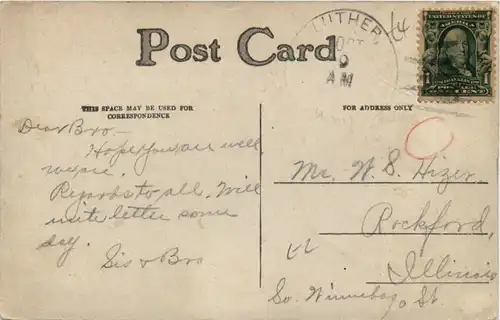 Post Card
LUTHER
OCT
9
AM
UNITED STATES OF AMERICA
1
ONE CENT
THIS SPACE MAY BE USED FOR
CORRESPONDENCE
FOR ADDRESS ONLY
Dear Bro —
Hope you are well
again.
Regards to all. Will
write letter some
day.
Sis & Bro
Mr. W. S. Hizer
Rockford,
Illinois
So. Winnebago St.